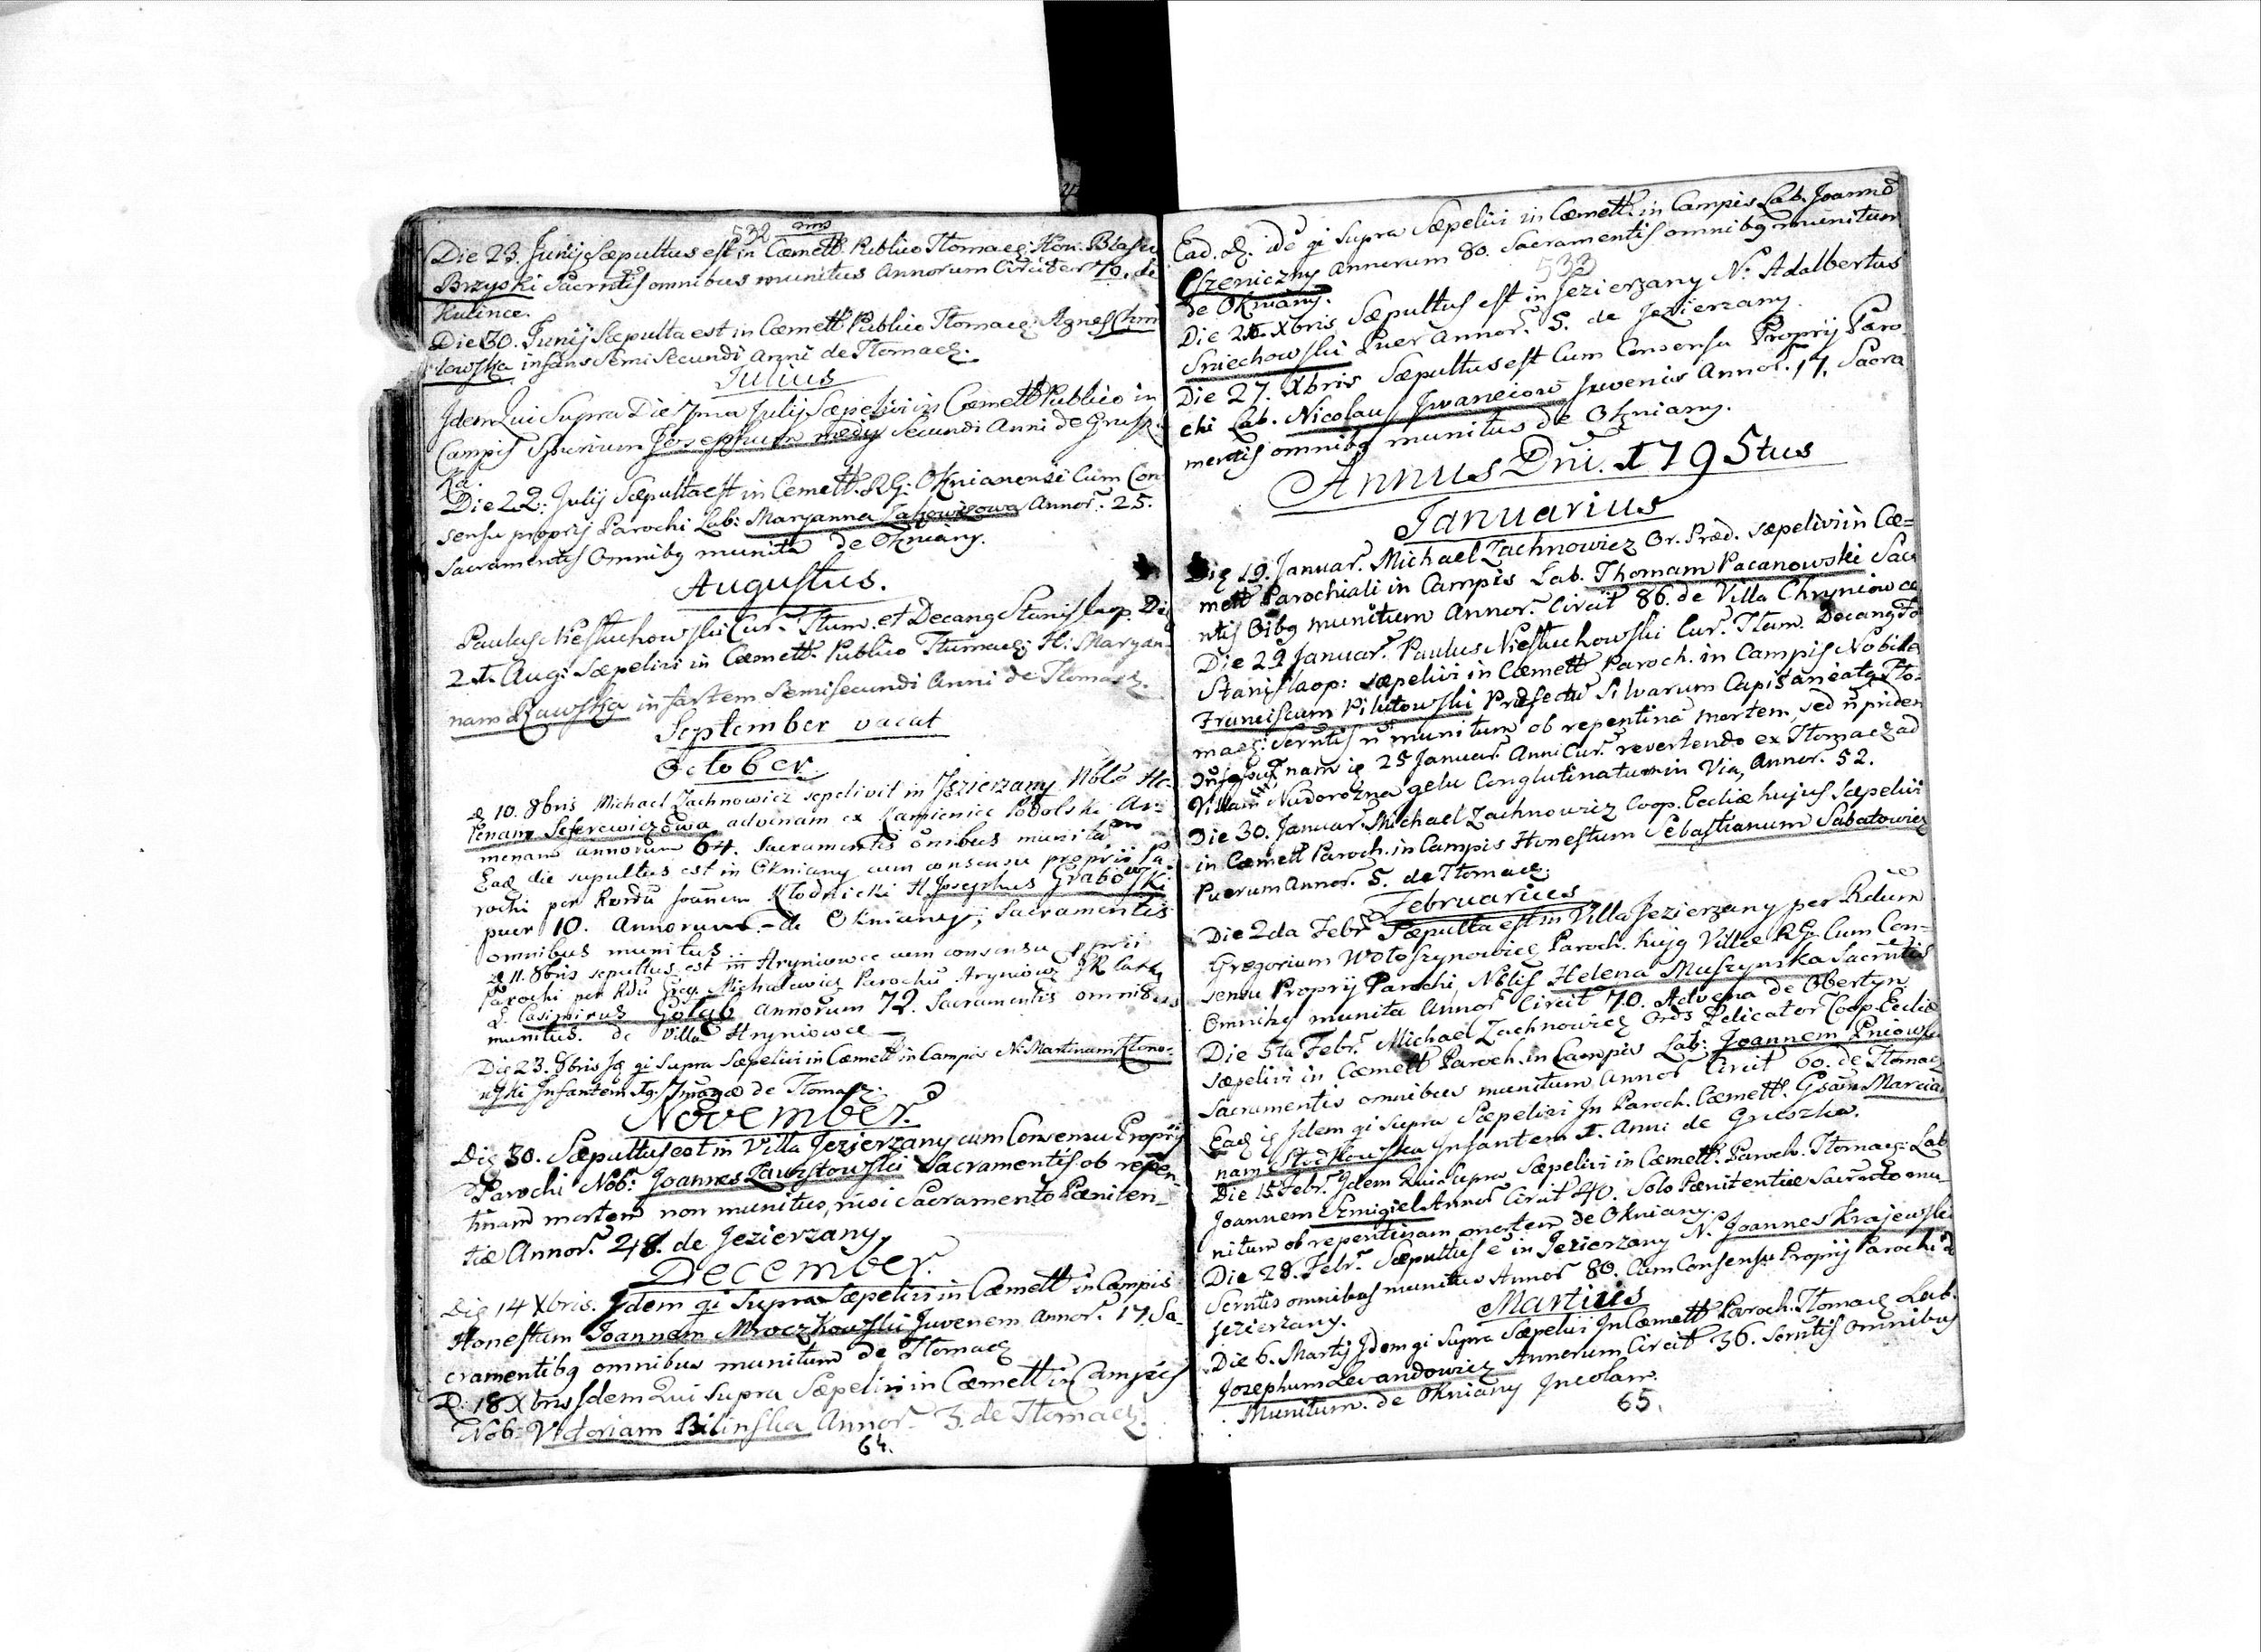 532
Die 23. Junij Sæpultus est in Cæmett. Publico Tłomacz: Hon: Blasius
Brzyski Sacrntis omnibus munitus Annorum Circiter 70. de
Kulince.
Die 30. Junij Sæpulta est in Cæmett Publico Tłomacz. Agnes Chmi
lowska infans Semisecundi Anni de Tłomacz.
Julius
Idem Qui Supra Die 7ma Julij Sæpelivi in Cæmett Publico in
Campis Spurium Josephum medij Secundi Anni de Grusz
ka.
Die 22: Julij Sæpulta est in Cemett. RG: Oknianensi Cum Con
sensu proprij Parochi Lab: Maryanna Annor. 25.
Sacramentis Omnibg munita de Okniany.
Augustus.
Paulus Niestuchowski Cur. Tłum. et Decang Stanislaop. Die
21. Augi Sæpelivi in Cæmett. Publico Tłumacz: H: Maryan
nam Rawska infantem Semisecundi Anni de Tłomacz.
September vacat
October
d 10. 8bris Michael Zachnowicz sepelivit in Jezierzany Nble He-
lenam Seferewiczowa advenam ex Kamieniec Podolski Ar-
menam annorum 64. Sacramentis onibus munitam
Ead die sepultus est in Okniany cum consensu proprii Pa
rochi per Rvrdu Joannem Kłodnicki H Josephus Grabowski
puer 10. Annorum - de Okniany; Sacramentis
omnibus munitus.
d 11. 8bris sepultus est in Hryniowce cum consensu pprii
Parochi per Rdu Greg. Michalewicz Parochu Hryniow
L. Casimirus Gołąb Annorum 72. Sacramentis omnibus
munitus. de Villa Hryniowce
Die 23. 8bris Idem qi Supra Sæpelivi in Cæmett in Campis N. Martinum Klono-
wski Infantem de Tłomacz.
November.
Die 30. Sæpultus est in Villa Jezierzany cum Consensu Proprij
Parochi Nob: Joannes Sacramentis ob repen
tinam mortem non munitus, nisi Sacramento Pæniten-
tiæ Annor. 28. de Jezierzany.
December.
Die 14 Xbris. Idem qi Supra Sæpelivi in Cæmett in Campis
Honestum Joannem Mroczkowski Juvenem Annor. 17. Sa-
cramentibg omnibus munitum de Tłomacz
D. 18 Xbris Idem Qui Supra Sæpelivi in Cæmett in Campis
Nob: Victoriam Bilinska Annor. 3. de Tłomacz.
64.
Ead. D. ide qi Supra Sæpelivi in Cæmett. in Campis Lab. Joannem
Pszeniczny Annorum 80. Sacramentis omnibg munitum
de Okniany.
533
Die 21. Xbris Sæpultus est in Jezierzany N. Adalbertus
Sniechowski Puer Annor. 5. de Jezierzany.
Die 27. Xbris Sæpultus est Cum Consensu Proprij Paro
chi Lab. Nicolaus Iwaneiow Juvenis Annor. 17. Sacra
mentis omnibg munitus de Okniany.
Annus Dni. 1795tus
Januarius
Die 19. Januar. Michael Zachnowicz Or. Præd. sæpelivi in Cæ=
mett Parochiali in Campis Lab. Thomam Pacanowski Sacr
ntis Oibg munitum Annor. Circit 86. de Villa Chryniowce
Die 29 Januar. Paulus Niestuchowski Cur. Tłum. Decang
Stanislaop: sæpelivi in Cæmett Paroch. in Campis Nobile
Franciscum Pilutowski Præfectu Silvarum Capitaneatg Tło-
macz: Scrntis ñ munitum ob repentina mortem, sed ñ pridem
nam 25 Januar. Anni Cur. revertendo ex Tłomacz ad
Villam Nadorożna gelu Conglutinatum in Via, Annor. 52.
Die 30. Januar. Michael Zachnowicz Coop. Eccliæ hujus Sæpelivi
in Cæmett Paroch. in Campis Honestum Sebastianum Sabatowicz
Puerum Annor. 5. de Tłomacz.
Februarius
Die 2da Febr. Sæpulta est in Villa Jezierzany per Rdum
Gregorium Wołoszynowicz Paroch. hujg Villæ RG. Cum Con=
sensu Proprij Parochi, Nblis Helena Muszynska Sacrntis
Omnibg munita Annor Circit 70. Advena de Obertyn.
Die 5ta Febr. Michael Zachnowicz Coop. Eccliæ
Sæpelivi in Cæmett Paroch. in Campis Lab: Joannem
Sacramentis omnibus munitum Annor Circit 60. de Tłomacz
Ead Idem qi Supra Sæpelivi In Paroch. Cæmett. Marcian
nam Infantem 1. Anni de Gruszka.
Die 15 Febr. Idem Qui Supra Sæpelivi in Cæmett. Paroch. Tłomacz: Lab
Joannem Szmigiel Annor Circit 40. Solo Pænitentiæ Sacrnto mu-
nitum ob repentinam mortem de Okniany.
Die 28. Febr. Sæpultus e in Jezierzany N. Joannes Krajewski
Scrntis omnibus munitus Annor 80. Cum Consensu Proprij Parochi d
Jezierzany.
Martius
Die 6. Martij Idem qi Supra Sæpelivi In Cæmett Paroch. Tłomacz Lab.
Josephum Levandowicz Annorum Circit 36. Scrntis Omnibus
Munitum. de Okniany Incolam.
65.